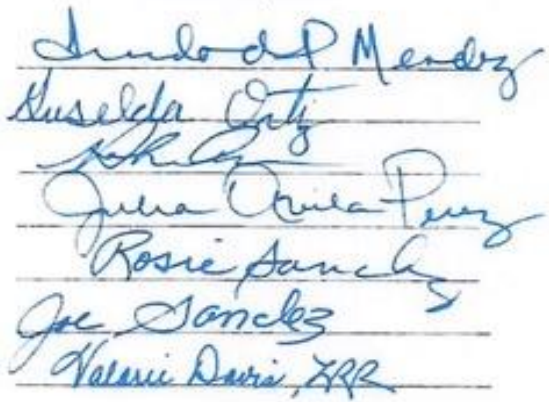 Mendez
Guselda Ortiz
Julia Avila Perez
Rosie Sanchez
Joe Sanchez
Valarie Davis, ZRR